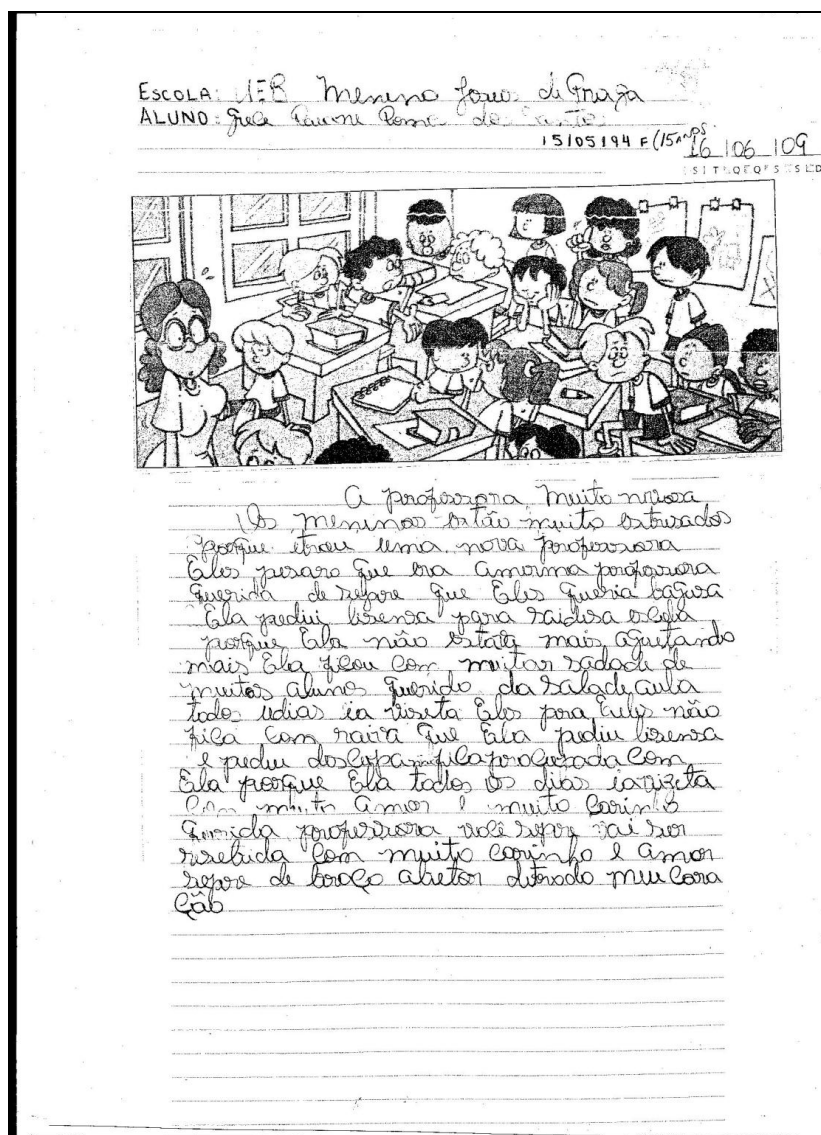 ESCOLA: UEB Menino Jesus de Praga
ALUNO:
15/05/94 F (15 anos
16 06 09
S T Q Q S S D
A professora muito nivosa
Os meninos estão muito estresados
porque etrou uma nova professora
Eles pesaro que era amerma professora
querida de sepre que Eles queria bagusa
Ela pediu lisensa para
porque Ela não estata mais aguetando
mais Ela ficou com muitar sadade de
muitos alunos querido da salade aula
todos udias ia viseta Eles pora Eules não
fica com raiva que Ela pediu lisensa
e pediu
Ela porque Ela todos os dias iavizeta
com muito amor e muito carinho
Querida professora vocé sepre vai ser
reselida com muito carinho e amor
sepre de braço abetor meu cora
ção